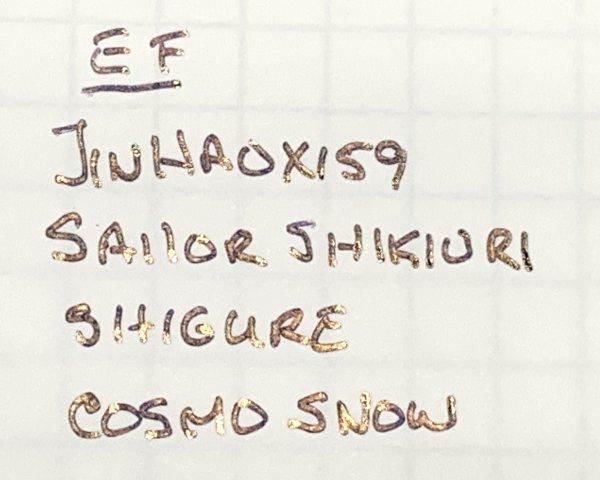 EF
JINHAO X159
SAILOR SHIKIURI
SHIGURE
COSMO SNOW